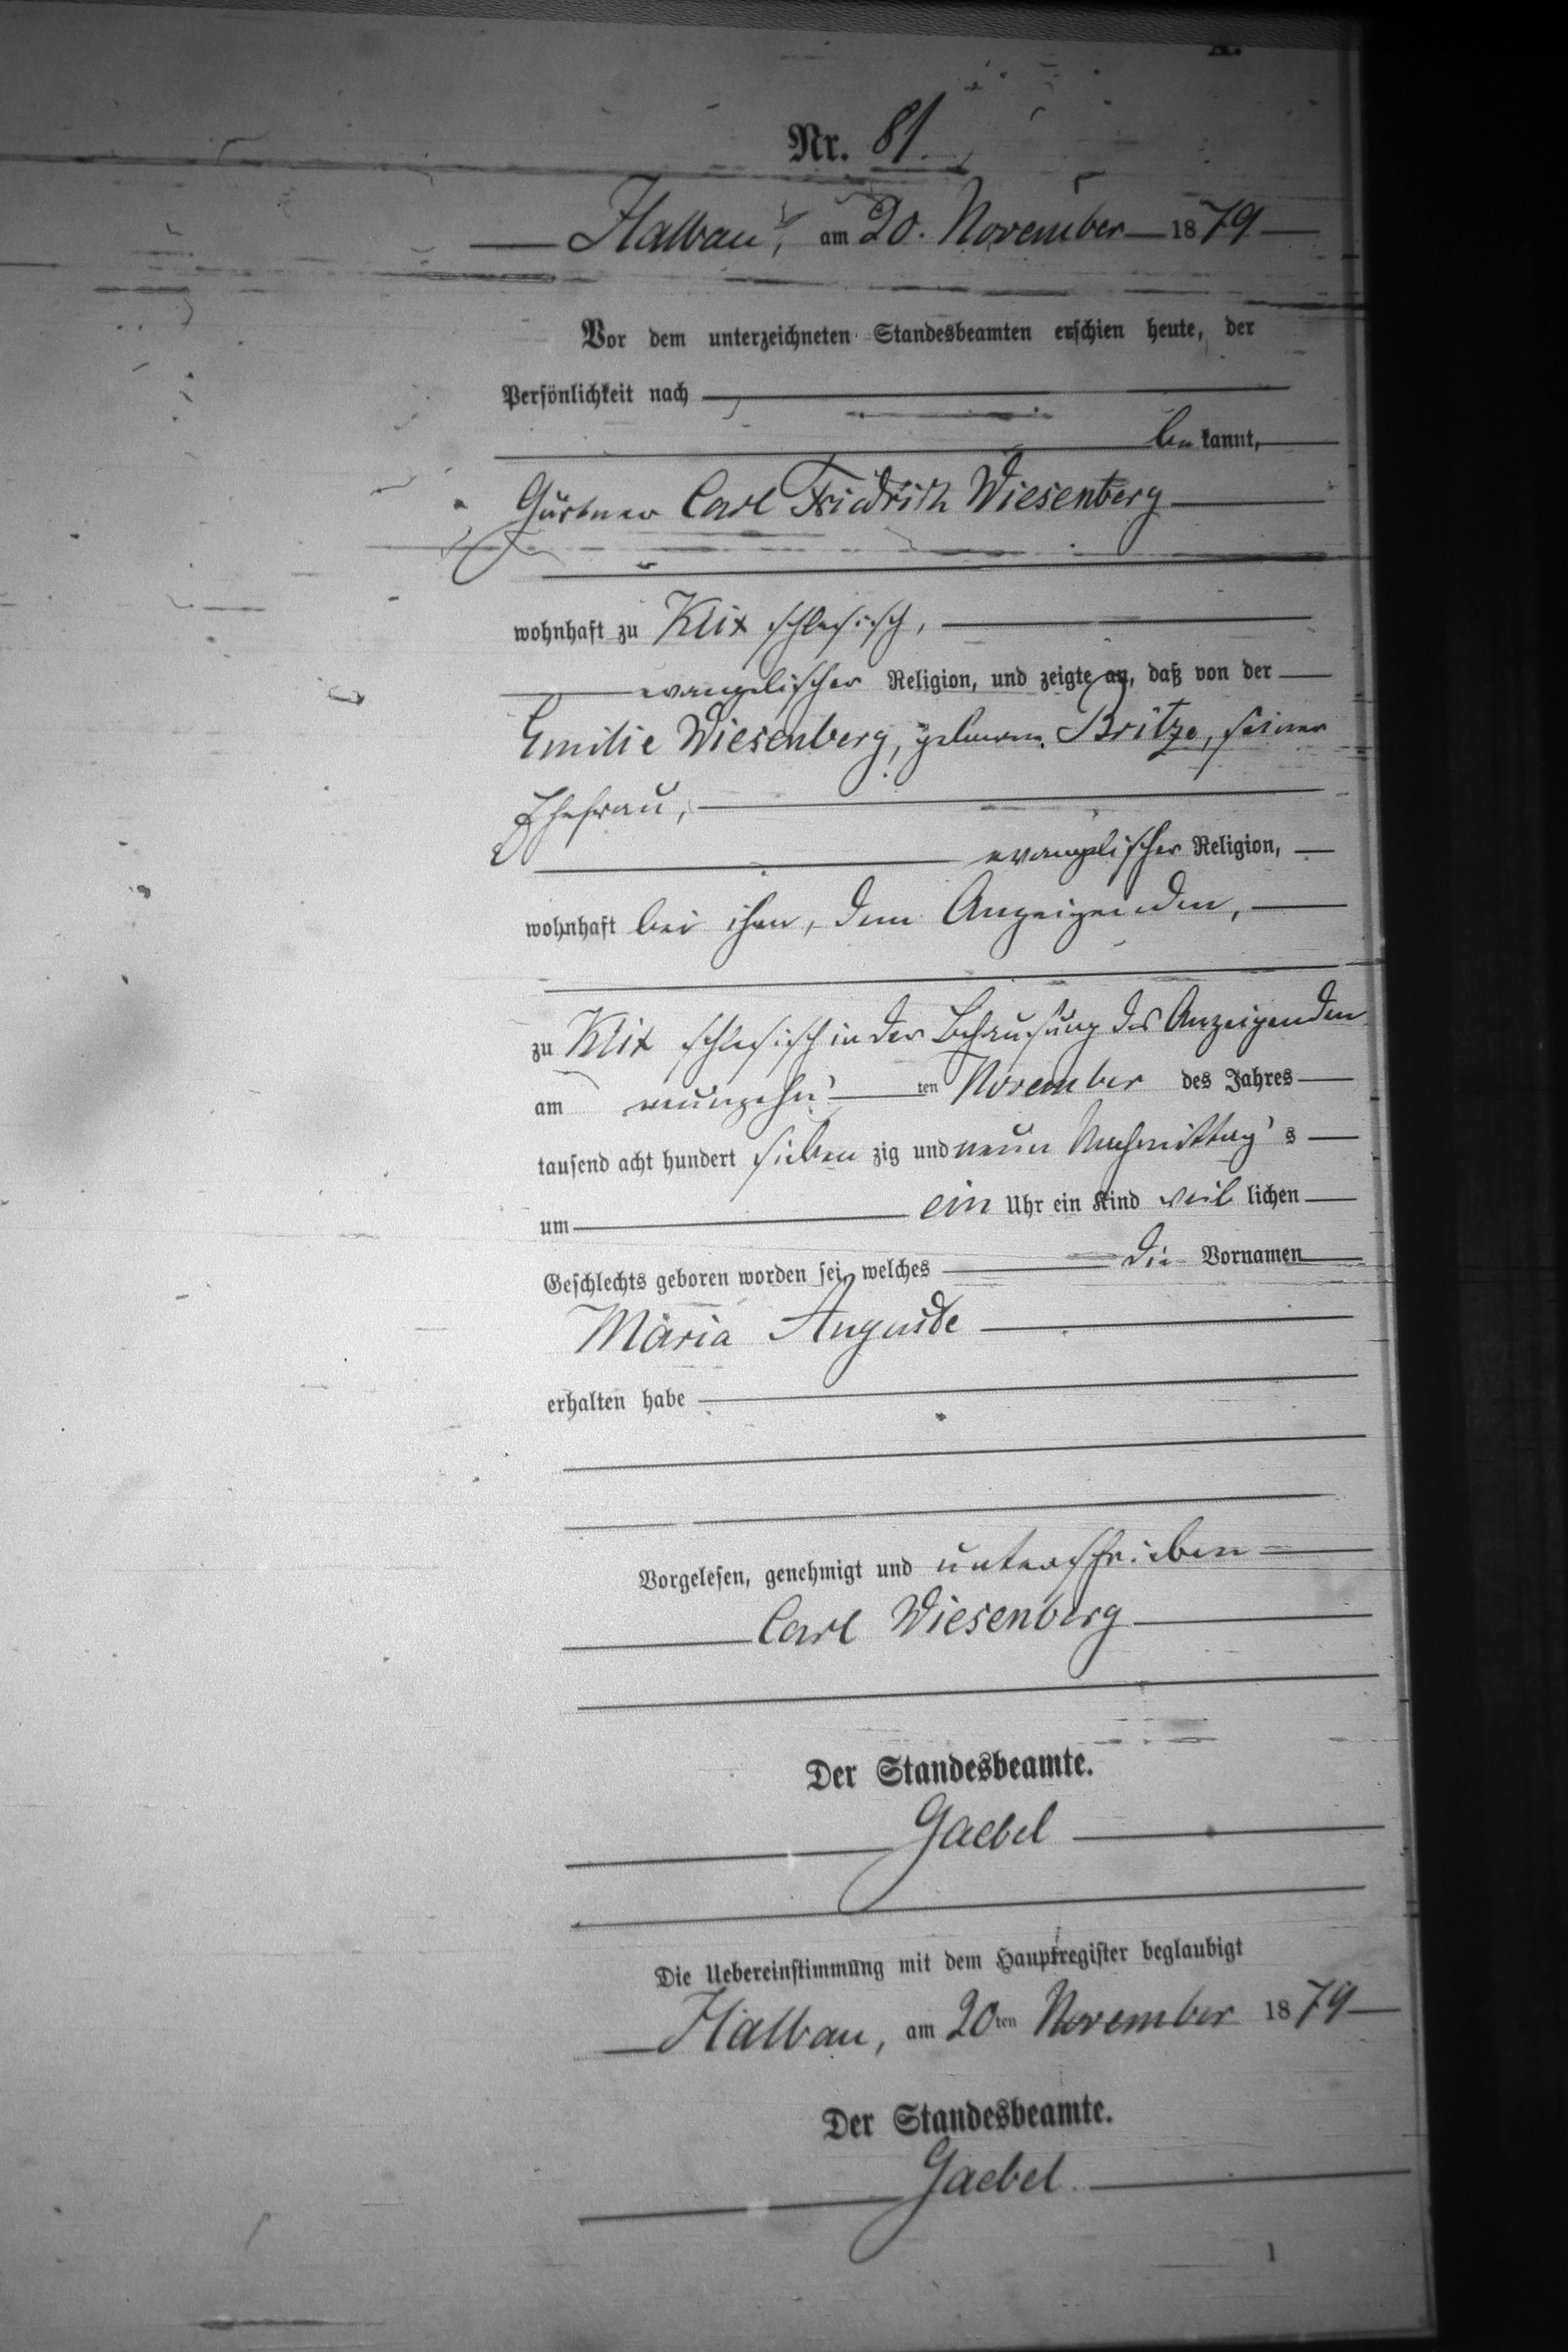 A.
Nr. 81.
Halbau, am 20. November 1879
Vor dem unterzeichneten Standesbeamten erschien heute, der
Persönlichkeit nach
be kannt,
Gärtner Carl Friedrich Wiesenberg
wohnhaft zu Klix schlesisch,
evangelischer Religion, und zeigte an, daß von der
Emilie Wiesenberg, geborne Britze, seiner
Ehefrau,
evangelischer Religion,
wohnhaft bei ihm, dem Anzeigenden,
zu Klix schlesisch in der Behausung des Anzeigenden
am neunzehn ten November des Jahres
tausend acht hundert sieben zig und neun Nachmittag's
um ein Uhr ein Kind weib lichen
Geschlechts geboren worden sei, welches die Vornamen
Maria Auguste
erhalten habe
Vorgelesen, genehmigt und unterschrieben
Carl Wiesenberg
Der Standesbeamte.
Gaebel
Die Uebereinstimmung mit dem Hauptregister beglaubigt
Halbau, am 20ten November 1879
Der Standesbeamte.
Gaebel
1